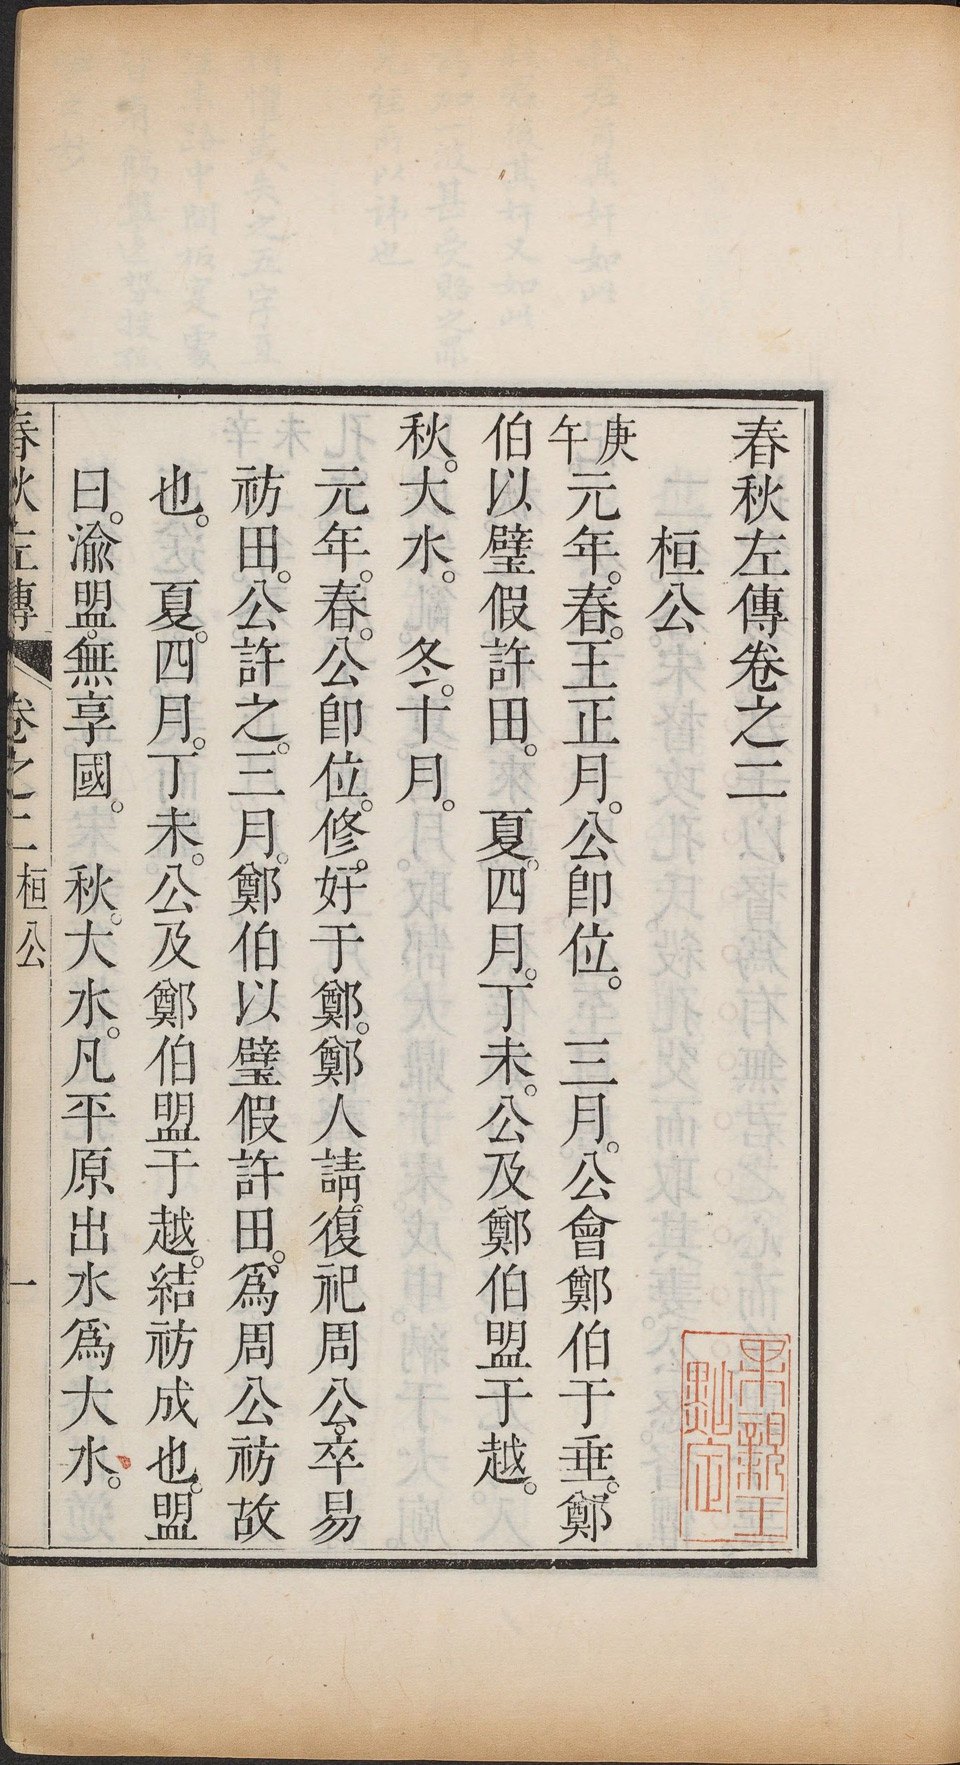 春秋左傳卷之二
桓公
庚午元年。春。王正月。公卽位。　三月。公會鄭伯于垂。鄭
伯以璧假許田。　夏。四月。丁未。公及鄭伯盟于越。
秋。大水。　冬。十月。
元年。春。公卽位。修好于鄭。鄭人請復祀周公。卒易
祊田。公許之。三月。鄭伯以璧假許田。爲周公祊故
也。　夏。四月。丁未。公及鄭伯盟于越。結祊成也。盟
曰。渝盟。無享國。　秋。大水。凡平原出水爲大水。
春秋左傳　卷之二　桓公　一